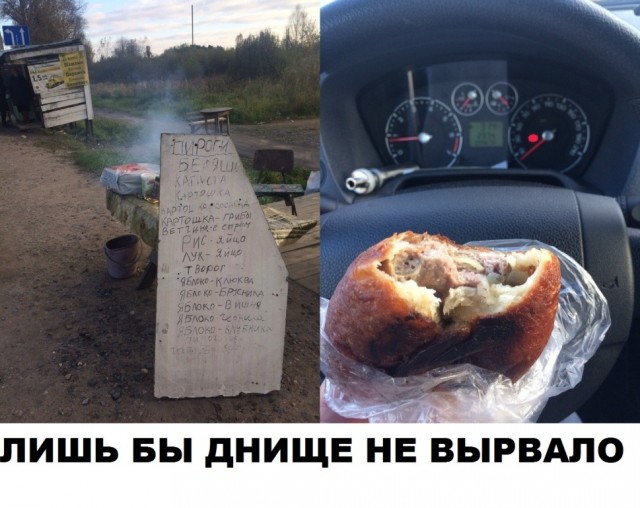 ПИРОГИ
БЕЛЯШИ
КАПУСТА
КАРТОШКА
КАРТОШКА-ГРИБЫ
ВЕТЧИНА-С СЫРОМ
РИС-ЯЙЦО
ЛУК-ЯЙЦО
ТВОРОГ
ЯБЛОКО-КЛЮКВА
ЯБЛОКО-БРУСНИКА
ЯБЛОКО-ВИШНЯ
ЯБЛОКО ЧЕРНИКА
ЯБЛОКО-КЛУБНИКА
ЛИШЬ БЫ ДНИЩЕ НЕ ВЫРВАЛО